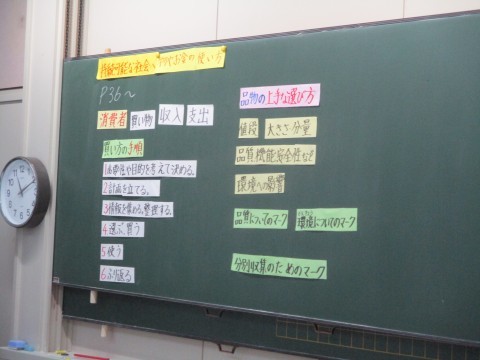 持続可能な社会へ 物やお金の使い方
P36〜
消費者 買い物 収入 支出
買い方の手順
1必要性や目的を考えて決める。
2計画を立てる。
3情報を集める、整理する。
4選ぶ、買う
5使う
6ふり返る
品物の上手な選び方
値段 大きさ・分量
品質、機能、安全性など
環境への影響
品質についてのマーク 環境についてのマーク
分別収集のためのマーク